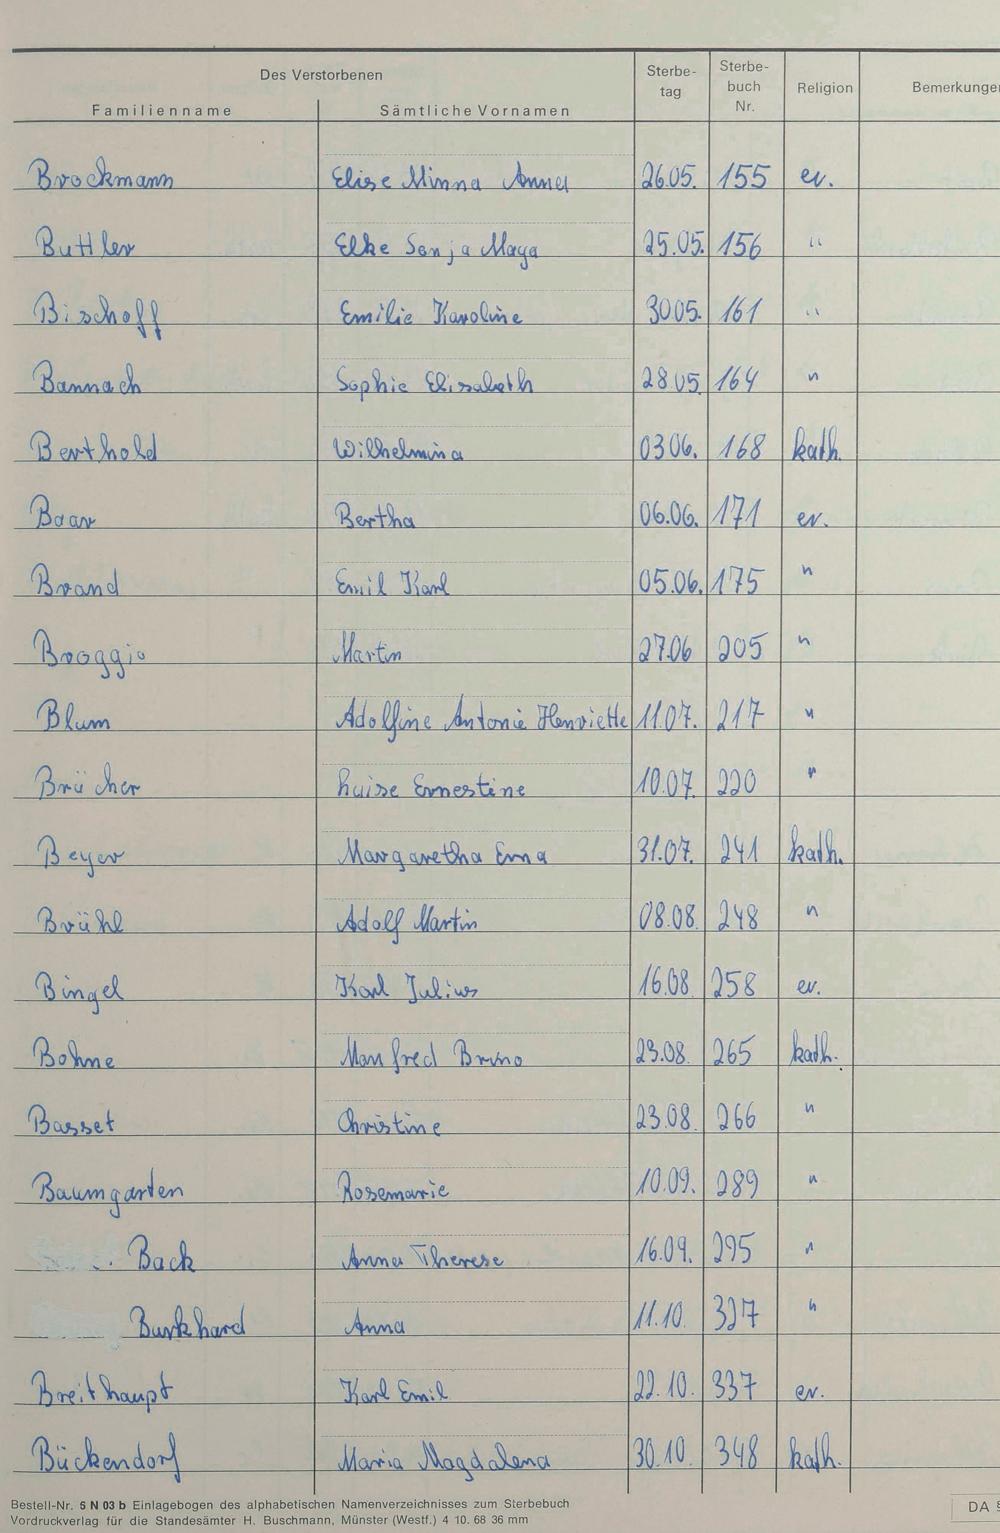 Des Verstorbenen Sterbe- Sterbe-
tag buch Religion Bemerkungen
Familienname Sämtliche Vornamen Nr.
Brockmann Elise Minna Anna 26.05. 155 ev.
Buttler Elke Sonja Maya 25.05. 156 "
Bischoff Emilie Karoline 30.05. 161 "
Bannach Sophie Elisabeth 28.05. 164 "
Berthold Wilhelmina 03.06. 168 kath.
Baar Bertha 06.06. 171 ev.
Brand Emil Karl 05.06. 175 "
Broggio Martin 27.06 205 "
Blum Adolfine Antonie Henriette 11.07. 217 "
Brücher Luise Ernestine 10.07. 220 "
Beyer Margaretha Erna 31.07. 241 kath.
Brühl Adolf Martin 08.08. 248 "
Bingel Karl Julius 16.08 258 ev.
Bohne Manfred Bruno 23.08. 265 kath.
Basset Christine 23.08. 266 "
Baumgarten Rosemarie 10.09. 289 "
Back Anna Therese 16.09. 295 "
Burkhard Anna 11.10. 327 "
Breithaupt Karl Emil 22.10. 337 ev.
Bückendorf Maria Magdalena 30.10. 348 kath.
Bestell-Nr. 5 N 03 b Einlagebogen des alphabetischen Namenverzeichnisses zum Sterbebuch
Vordruckverlag für die Standesämter H. Buschmann, Münster (Westf.) 4 10. 68 36 mm
DA